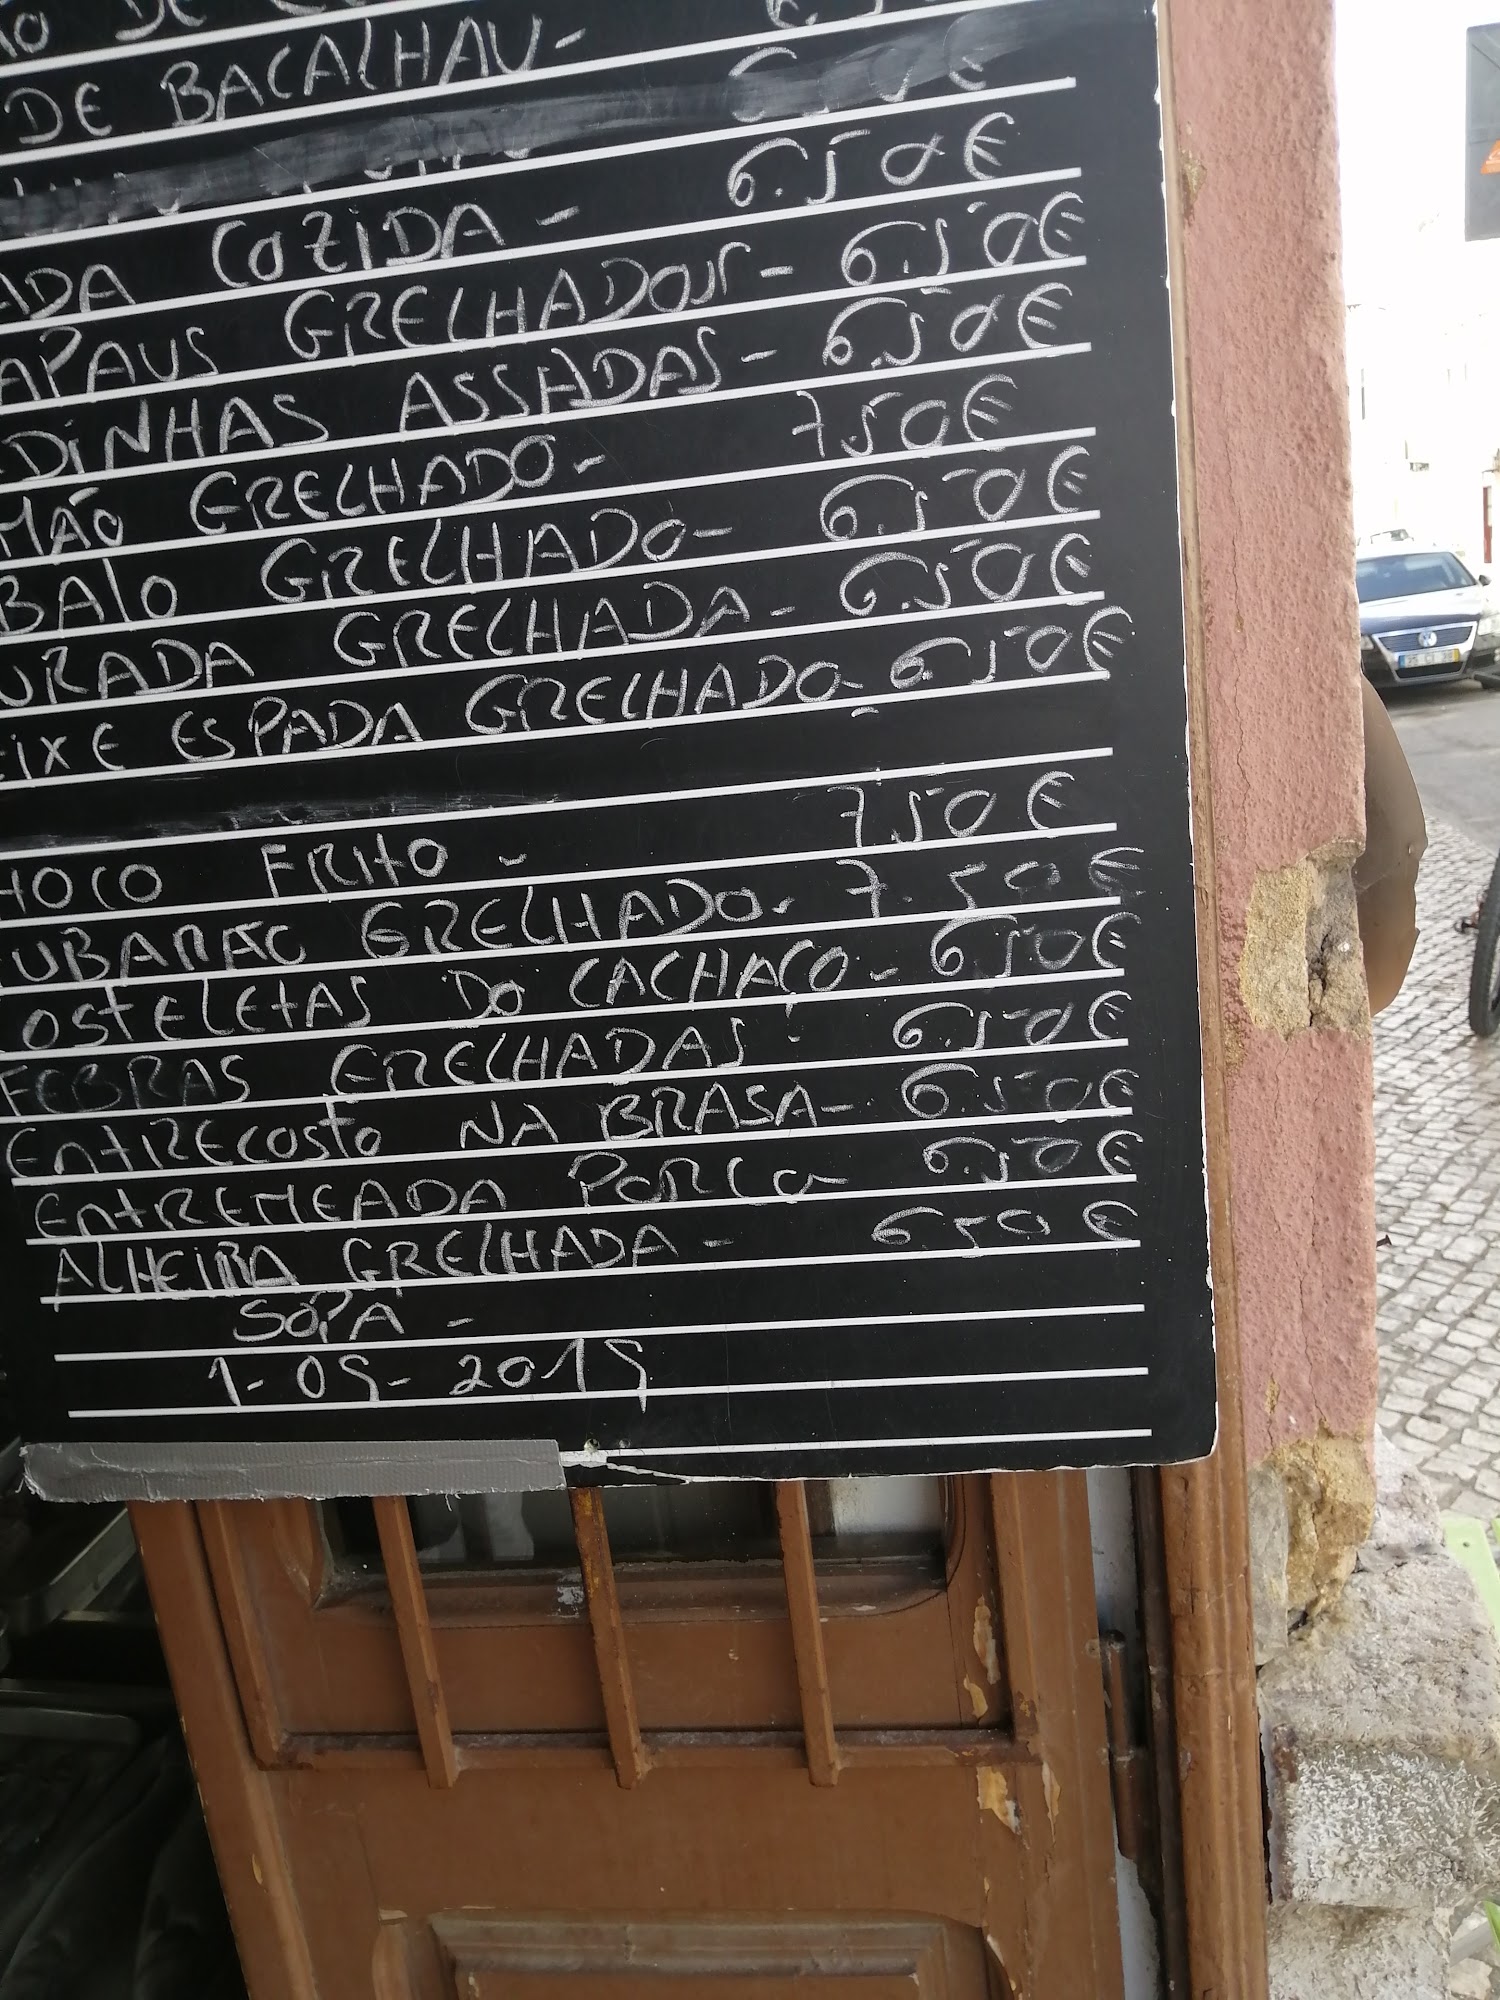 DE BACALHAU-
COZIDA - 6.50€
APAUS GRELHADOS- 6.50€
DINHAS ASSADAS- 6.50€
MÃO GRELHADO- 7.50€
BALO GRELHADO- 6.50€
URADA GRELHADA- 6.50€
EIXE ESPADA GRELHADO- 6.50€
HOCO FRITO - 7.50€
GRELHADO. 7.50€
OSTELETAS DO CACHAÇO- 6.50€
FEBRAS GRELHADAS- 6.50€
ENTRECOSTO NA BRASA- 6.50€
ENTREMEADA PORCO 6.50€
ALHEIRA GRELHADA- 6.50€
SOPA -
1-09-2019